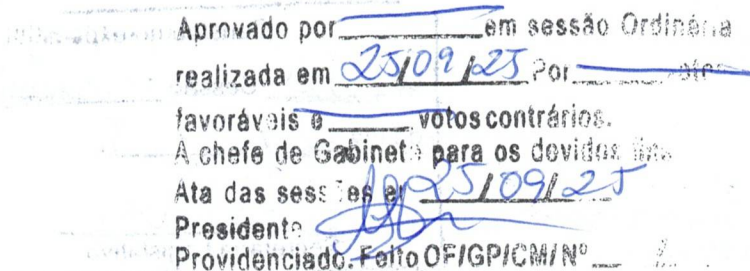 Aprovado por ______ em sessão Ordinária
realizada em 25/09/25 Por ______
favoráveis e ____ votos contrários.
A chefe de Gabinete para os devidos fins
Ata das sessões em 25/09/25
Presidente
Providenciado. Feito OF/GP/CM/Nº __ /